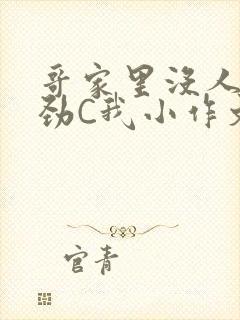 哥家里没人
劲C我小作文
官青